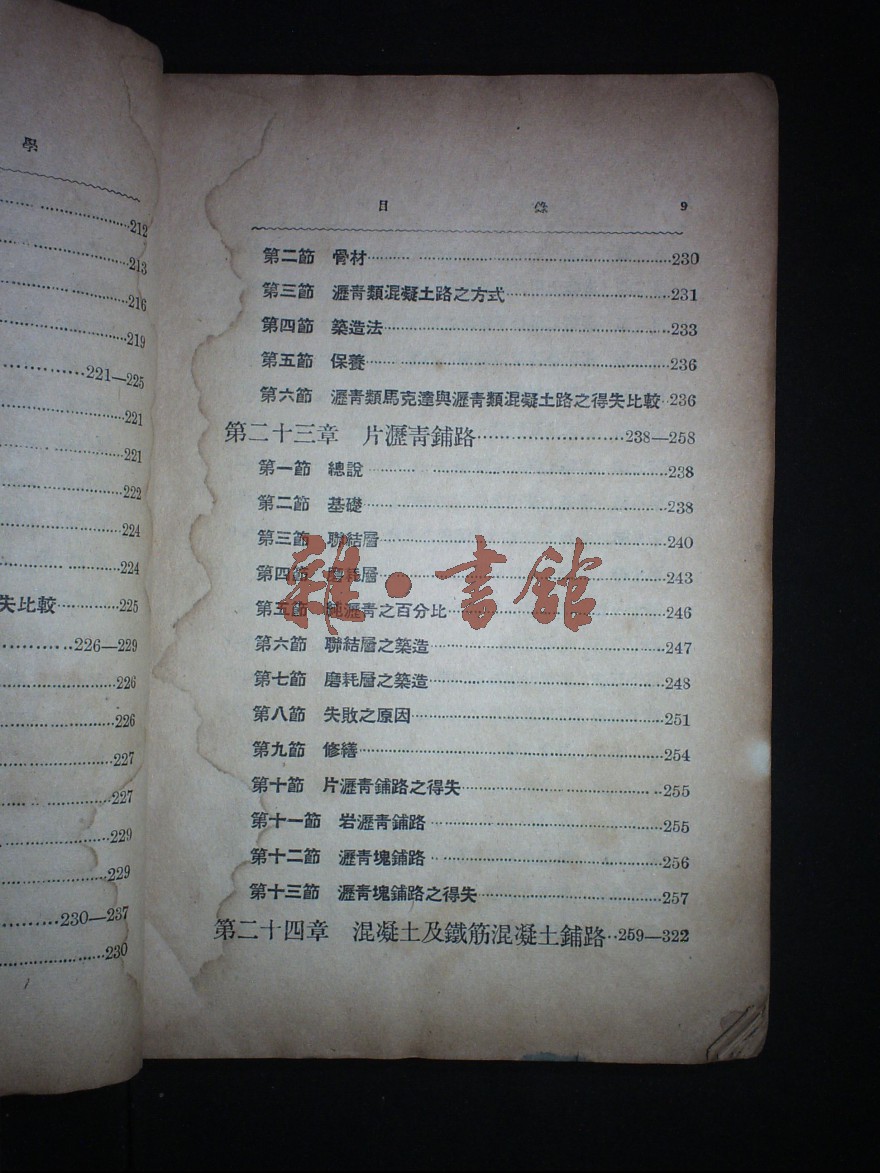 學
212
213
216
219
221—225
221
221
222
224
224
失比較 225
226—229
226
226
227
227
229
229
230—237
230
目 錄 9
第二節 骨材 230
第三節 瀝青類混凝土路之方式 231
第四節 築造法 233
第五節 保養 236
第六節 瀝青類馬克達與瀝青類混凝土路之得失比較 236
第二十三章 片瀝青鋪路 238—258
第一節 總說 238
第二節 基礎 238
第三節 聯結層 240
第四節 磨耗層 243
第五節 純瀝青之百分比 246
第六節 聯結層之築造 247
第七節 磨耗層之築造 248
第八節 失敗之原因 251
第九節 修繕 254
第十節 片瀝青鋪路之得失 255
第十一節 岩瀝青鋪路 255
第十二節 瀝青塊鋪路 256
第十三節 瀝青塊鋪路之得失 257
第二十四章 混凝土及鐵筋混凝土鋪路 259—322
雜·書館